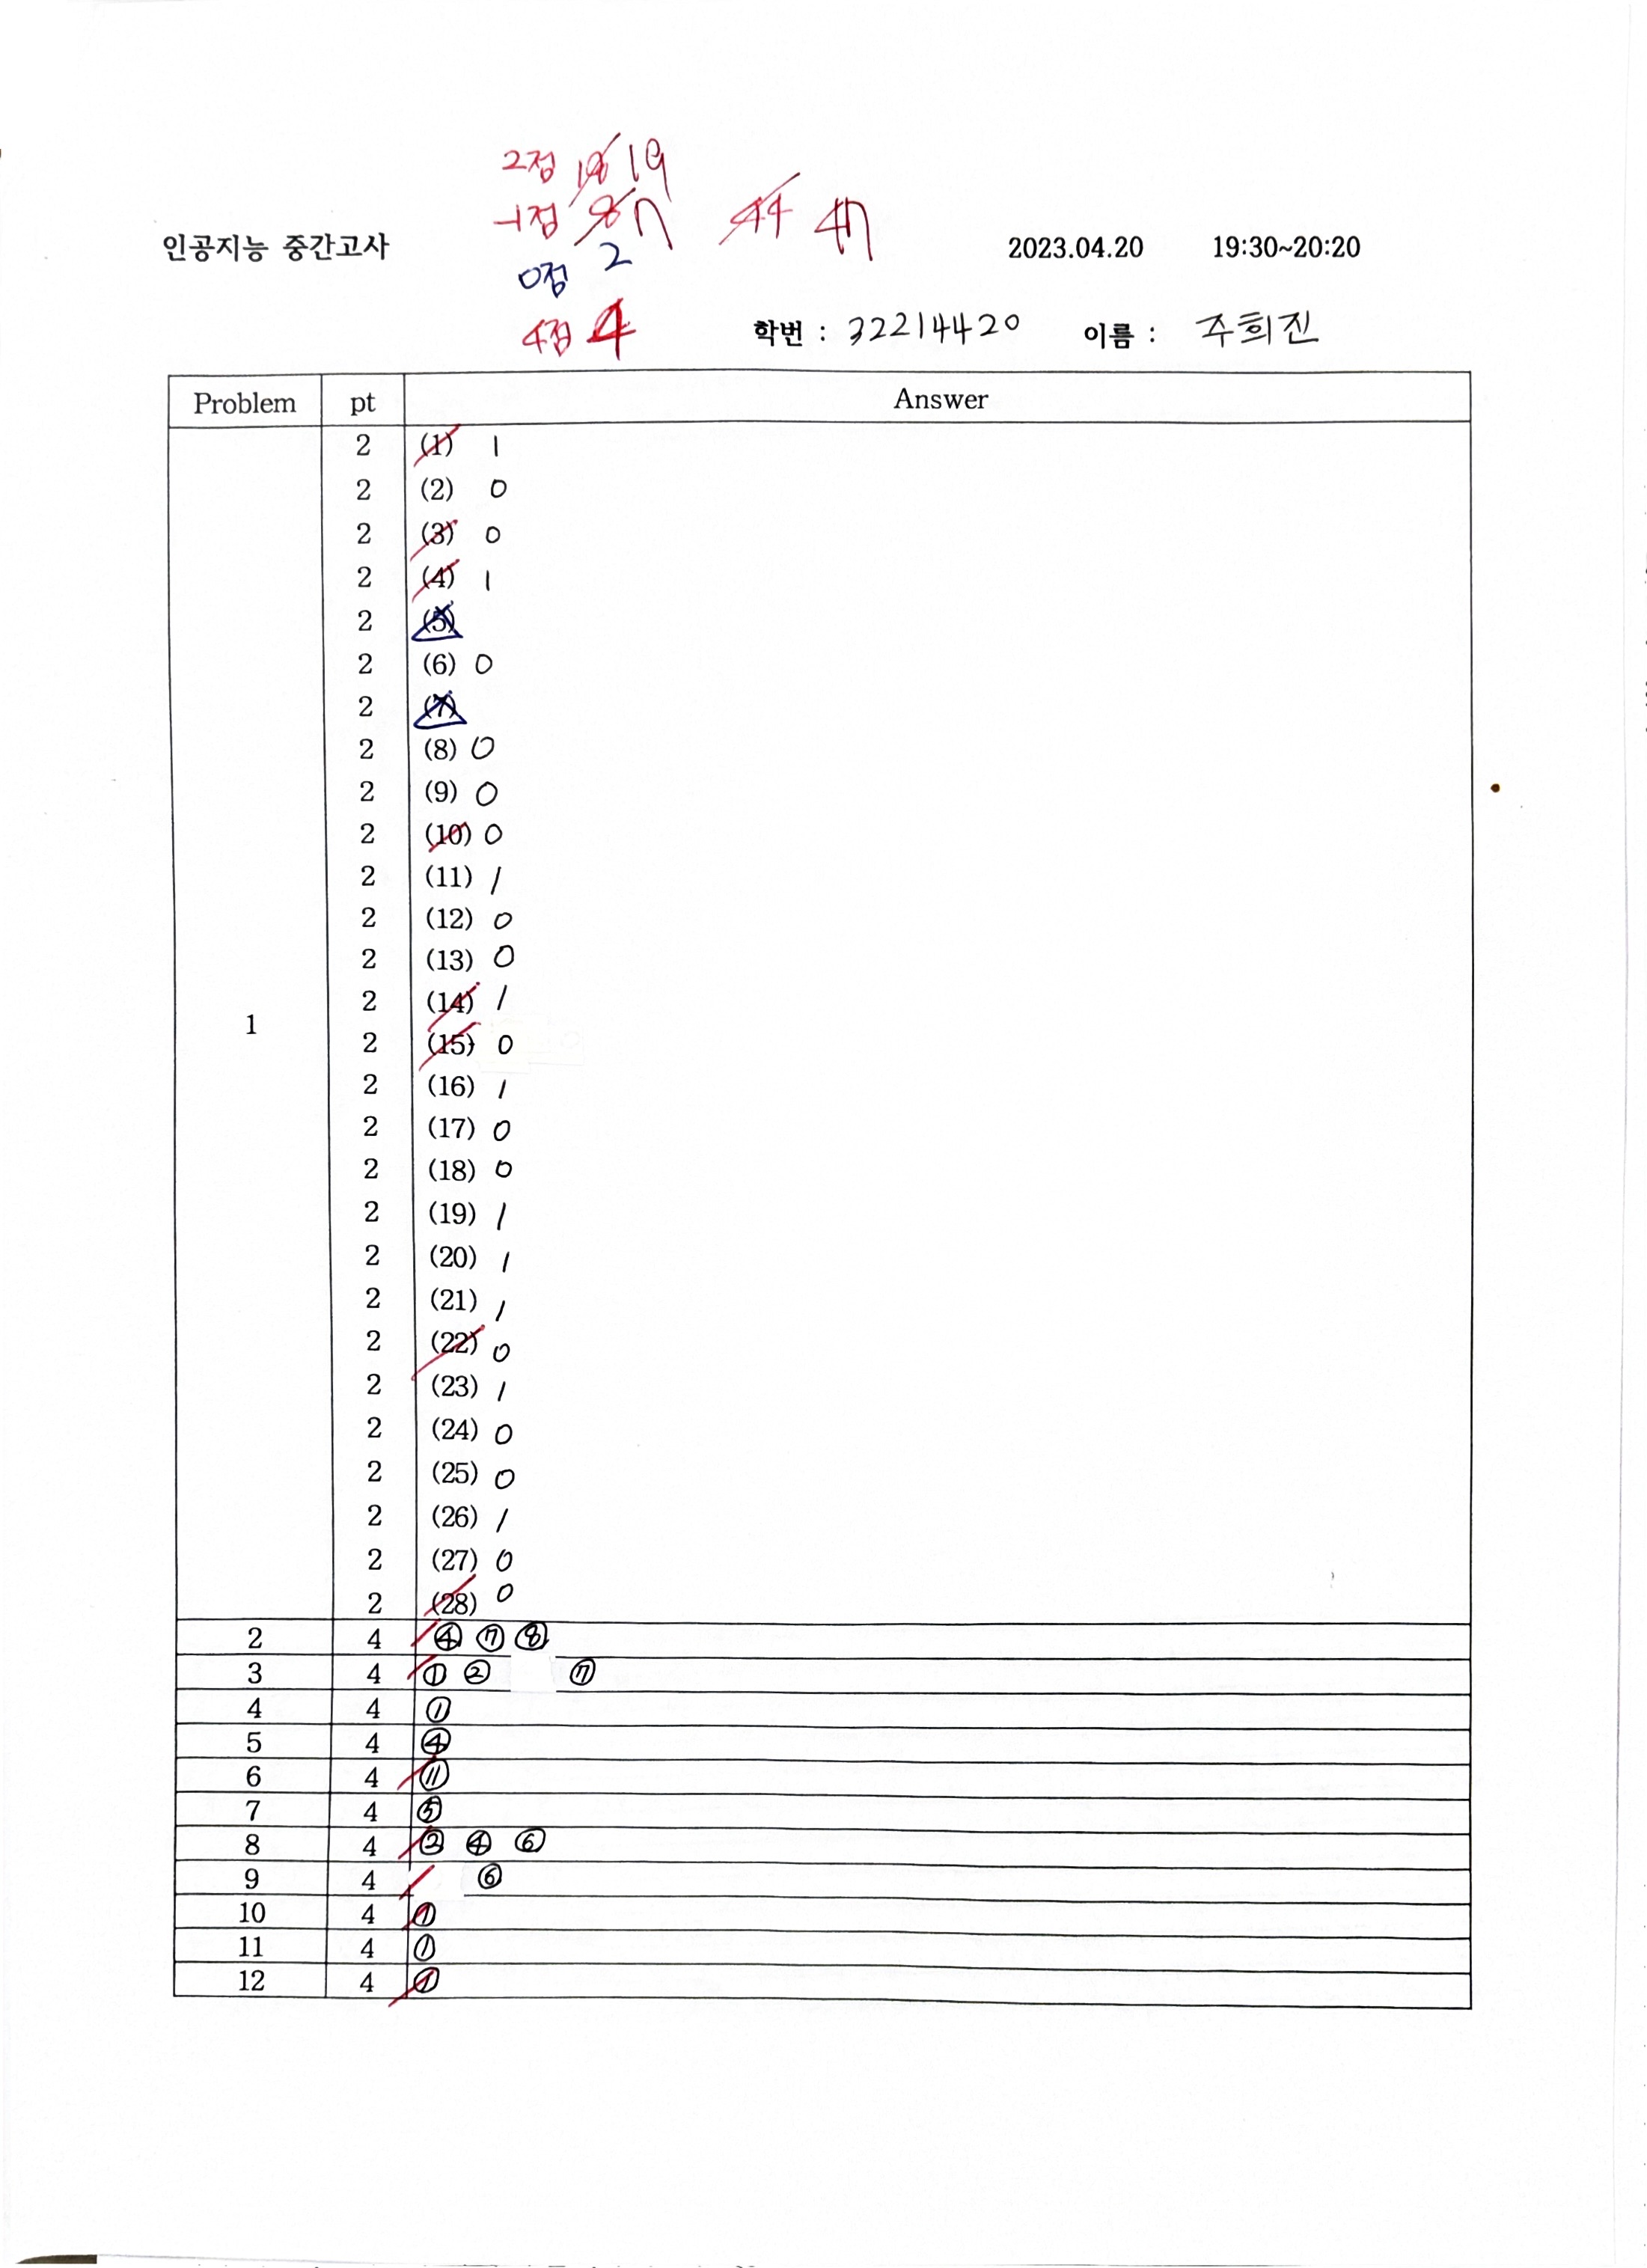 2점 18 19
-1점 8 7 44 47
인공지능 중간고사 2023.04.20 19:30~20:20
0점 2
4점 4 학번 : 32214420 이름 : 주희진
Problem pt Answer
2 (1) 1
2 (2) 0
2 (3) 0
2 (4) 1
2 (5)
2 (6) 0
2 (7)
2 (8) 0
2 (9) 0
2 (10) 0
2 (11) 1
2 (12) 0
2 (13) 0
2 (14) 1
1 2 (15) 0
2 (16) 1
2 (17) 0
2 (18) 0
2 (19) 1
2 (20) 1
2 (21) 1
2 (22) 0
2 (23) 1
2 (24) 0
2 (25) 0
2 (26) 1
2 (27) 0
2 (28) 0
2 4 ④ ⑦ ⑧
3 4 ① ② ⑦
4 4 ①
5 4 ④
6 4 ⑪
7 4 ⑤
8 4 ② ④ ⑥
9 4 ⑥
10 4 ①
11 4 ①
12 4 ①